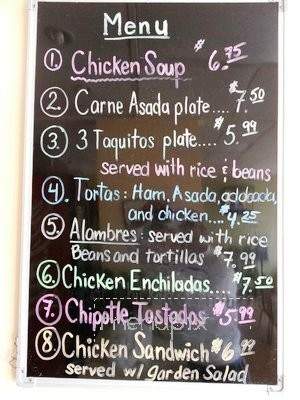 Menu
1. Chicken Soup $6.75
2. Carne Asada plate.... $7.50
3. 3 Taquitos plate.... $5.99
served with rice & beans
4. Tortas: Ham, Asada, addobada,
and chicken.... $4.25
5. Alambres: served with rice
Beans and tortillas $7.99
6. Chicken Enchiladas.... $7.50
7. Chipotle Tostadas $5.99
8 Chicken Sandwich $6.99
served w/ garden Salad